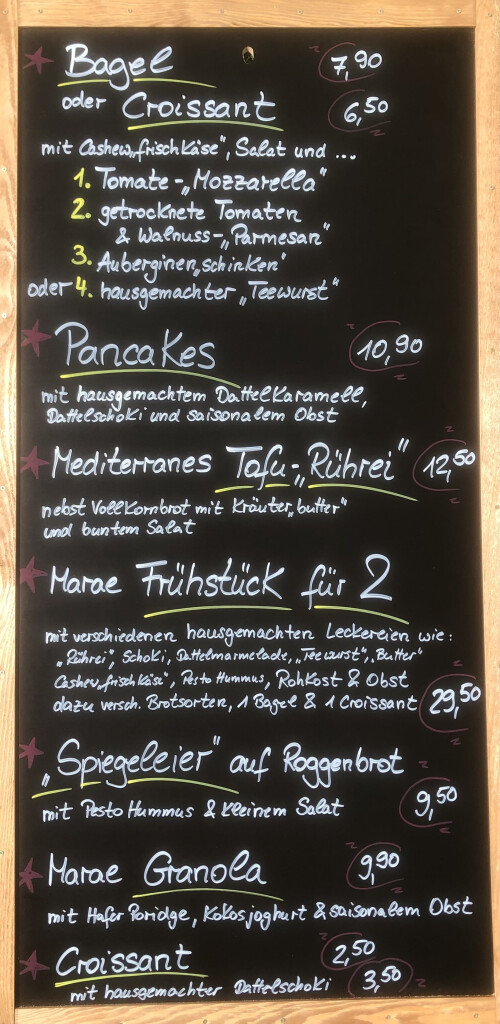 Bagel 7,90
oder Croissant 6,50
mit Cashew„frischkäse“, Salat und ...
1. Tomate-„Mozzarella“
2. getrocknete Tomaten
& Walnuss-„Parmesan“
3. Auberginen„schinken“
oder 4. hausgemachter „Teewurst“
Pancakes 10,90
mit hausgemachtem Dattelkaramell,
Dattelschoki und saisonalem Obst
Mediterranes Tofu-„Rührei“ 12,50
nebst Vollkornbrot mit Kräuter„butter“
und buntem Salat
Marae Frühstück für 2
mit verschiedenen hausgemachten Leckereien wie:
„Rührei“, Schoki, Dattelmarmelade, „Teewurst“, „Butter“
Cashew„frischkäse“, Pesto Hummus, Rohkost & Obst
dazu versch. Brotsorten, 1 Bagel & 1 Croissant 29,50
„Spiegeleier“ auf Roggenbrot
mit Pesto Hummus & kleinem Salat 9,50
Marae Granola 9,90
mit Hafer Poridge, Kokosjoghurt & saisonalem Obst
Croissant 2,50
mit hausgemachter Dattelschoki 3,50